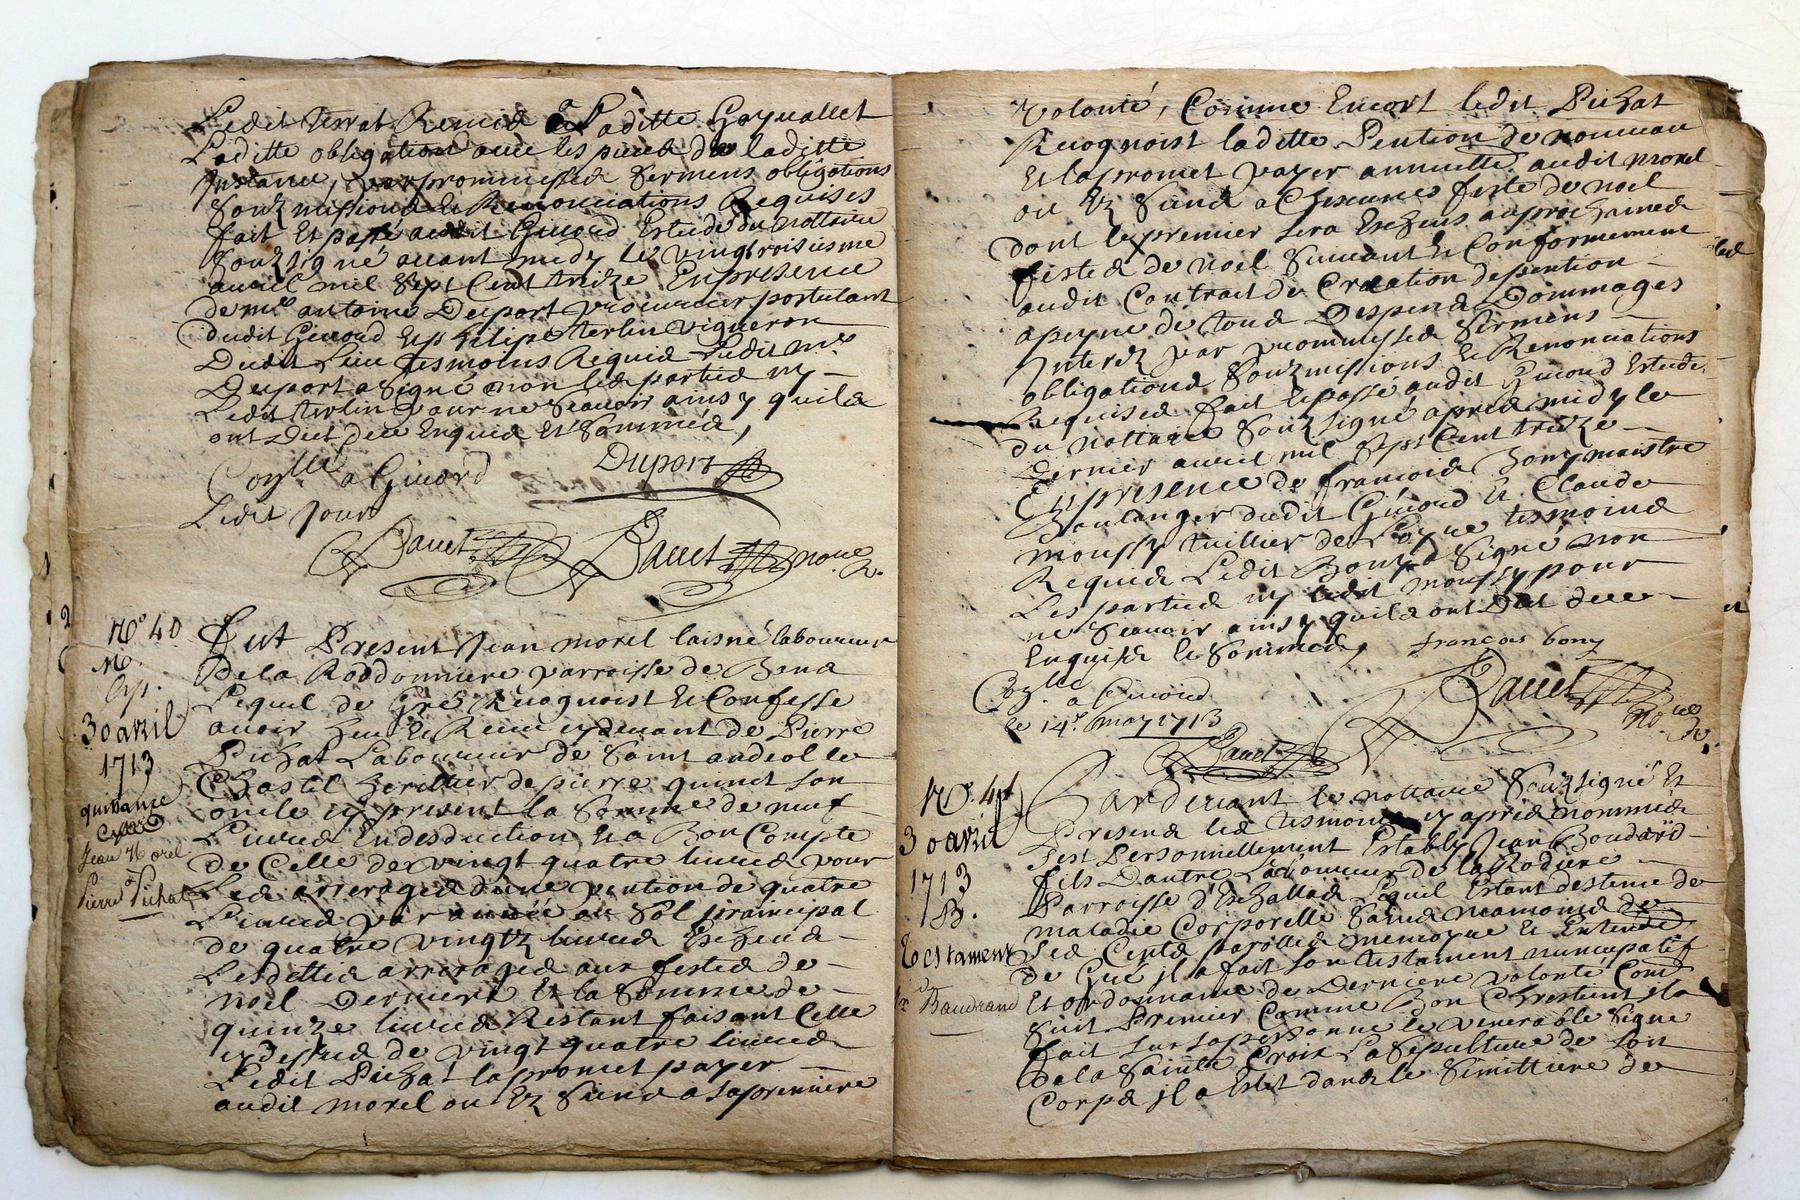 Ledit terrat Remis a Laditte Goyuallet
Laditte obligation avec les pieces de laditte
Instance, par promesses sermens obligations
Souzmissions & Renonciations Requises
fait Et passé audit Givord Estude du nottaire
souzsigné avant midy le vingtroisiesme
avril mil sept Cent treize En presence
de me antoine Duport procureur postulant
dudit Givord Et philipe terlin vigneron
Dudit Lieu tesmoins Requis Ledit me
Duport a signé non les parties ny
Ledit terlin pour ne sçavoir ainsy quils
ont dict de ce Enquis Et sommés,
Coñlle a Givord
Ledit jour
Duport
Bauet
Bauet no.re R.
No 40
30 avril
1713
quittance
Jean Morel
Pierre Pichat
fut Present Jean morel laisné laboureur
De la Roddonniere parroisse de Bans
Lequel de gré Recognoist & Confesse
avoir heu & Receu cydevant de Pierre
Pichat Laboureur de Saint andeol le
Chastel heritier de pierre quinet son
oncle cy present la somme de neuf
Livres En desduction & a Bon Compte
de Celle de vingt quatre livres pour
Les arrerages d'une pention de quatre
Livres par année au sol principal
de quatre vingtz livres Escheus
Lesdittes arrerages aux festes de
noel Dernieres Et la somme de
quinze livres Restant faisant Celle
cy dessus de vingt quatre livres
Ledit Pichat la promet payer
audit morel ou Ez siens a sa premiere
volonté, Comme Encort ledit Pichat
Recognoist laditte Pention de nouveau
Et la promet payer annuelle audit morel
ou Ez siens a Chascunes feste de noel
dont le premier sera Escheus aux prochaines
festes de noel suivant & Conformement
audit Contrait de Creation de pention
a peyne de tous Despens Dommages
Interez par promesses sermens
obligations souzmissions & Renonciations
Requises fait & passé audit Givord Estude
du nottaire souzsigné apres midy le
Dernier avril mil sept Cent treize
En presence de francois Bony maistre
Boulanger dudit Givord & Claude
moussy tuillier de Loyre tesmoins
Requis Ledit Bony a signé non
Les parties ny ledit moussy pour
ne sçavoir ainsy quils ont dict de ce
Enquis & sommés,
francois bony
Coñlle a Givord
le 14e may 1713
Bauet
Bauet no.re R.
No. 41
30 avril
1713
B.
testament
de
Jn Baudrand
Pardevant le nottaire souzsigné Et
Presens les tesmoins cy apres nommés
s'est Personnellement Estably Jean Boudard
fils D'autre Laboureur de la Rodiere
Parroisse d'Eschallas Lequel Estant destenu de
maladie Corporelle sains neamoins de
ses Cents parolles memoyre & Entendt
De Gré jl a fait son testament nuncupatif
Et ordonnance de Derniere volonté Comme
suit Premier Comme Bon Chrestient jl a
fait sur sa personne le venerable signe
de la sainte Croix La sepulture de son
Corps jl a Eslit dans le Simittiere de